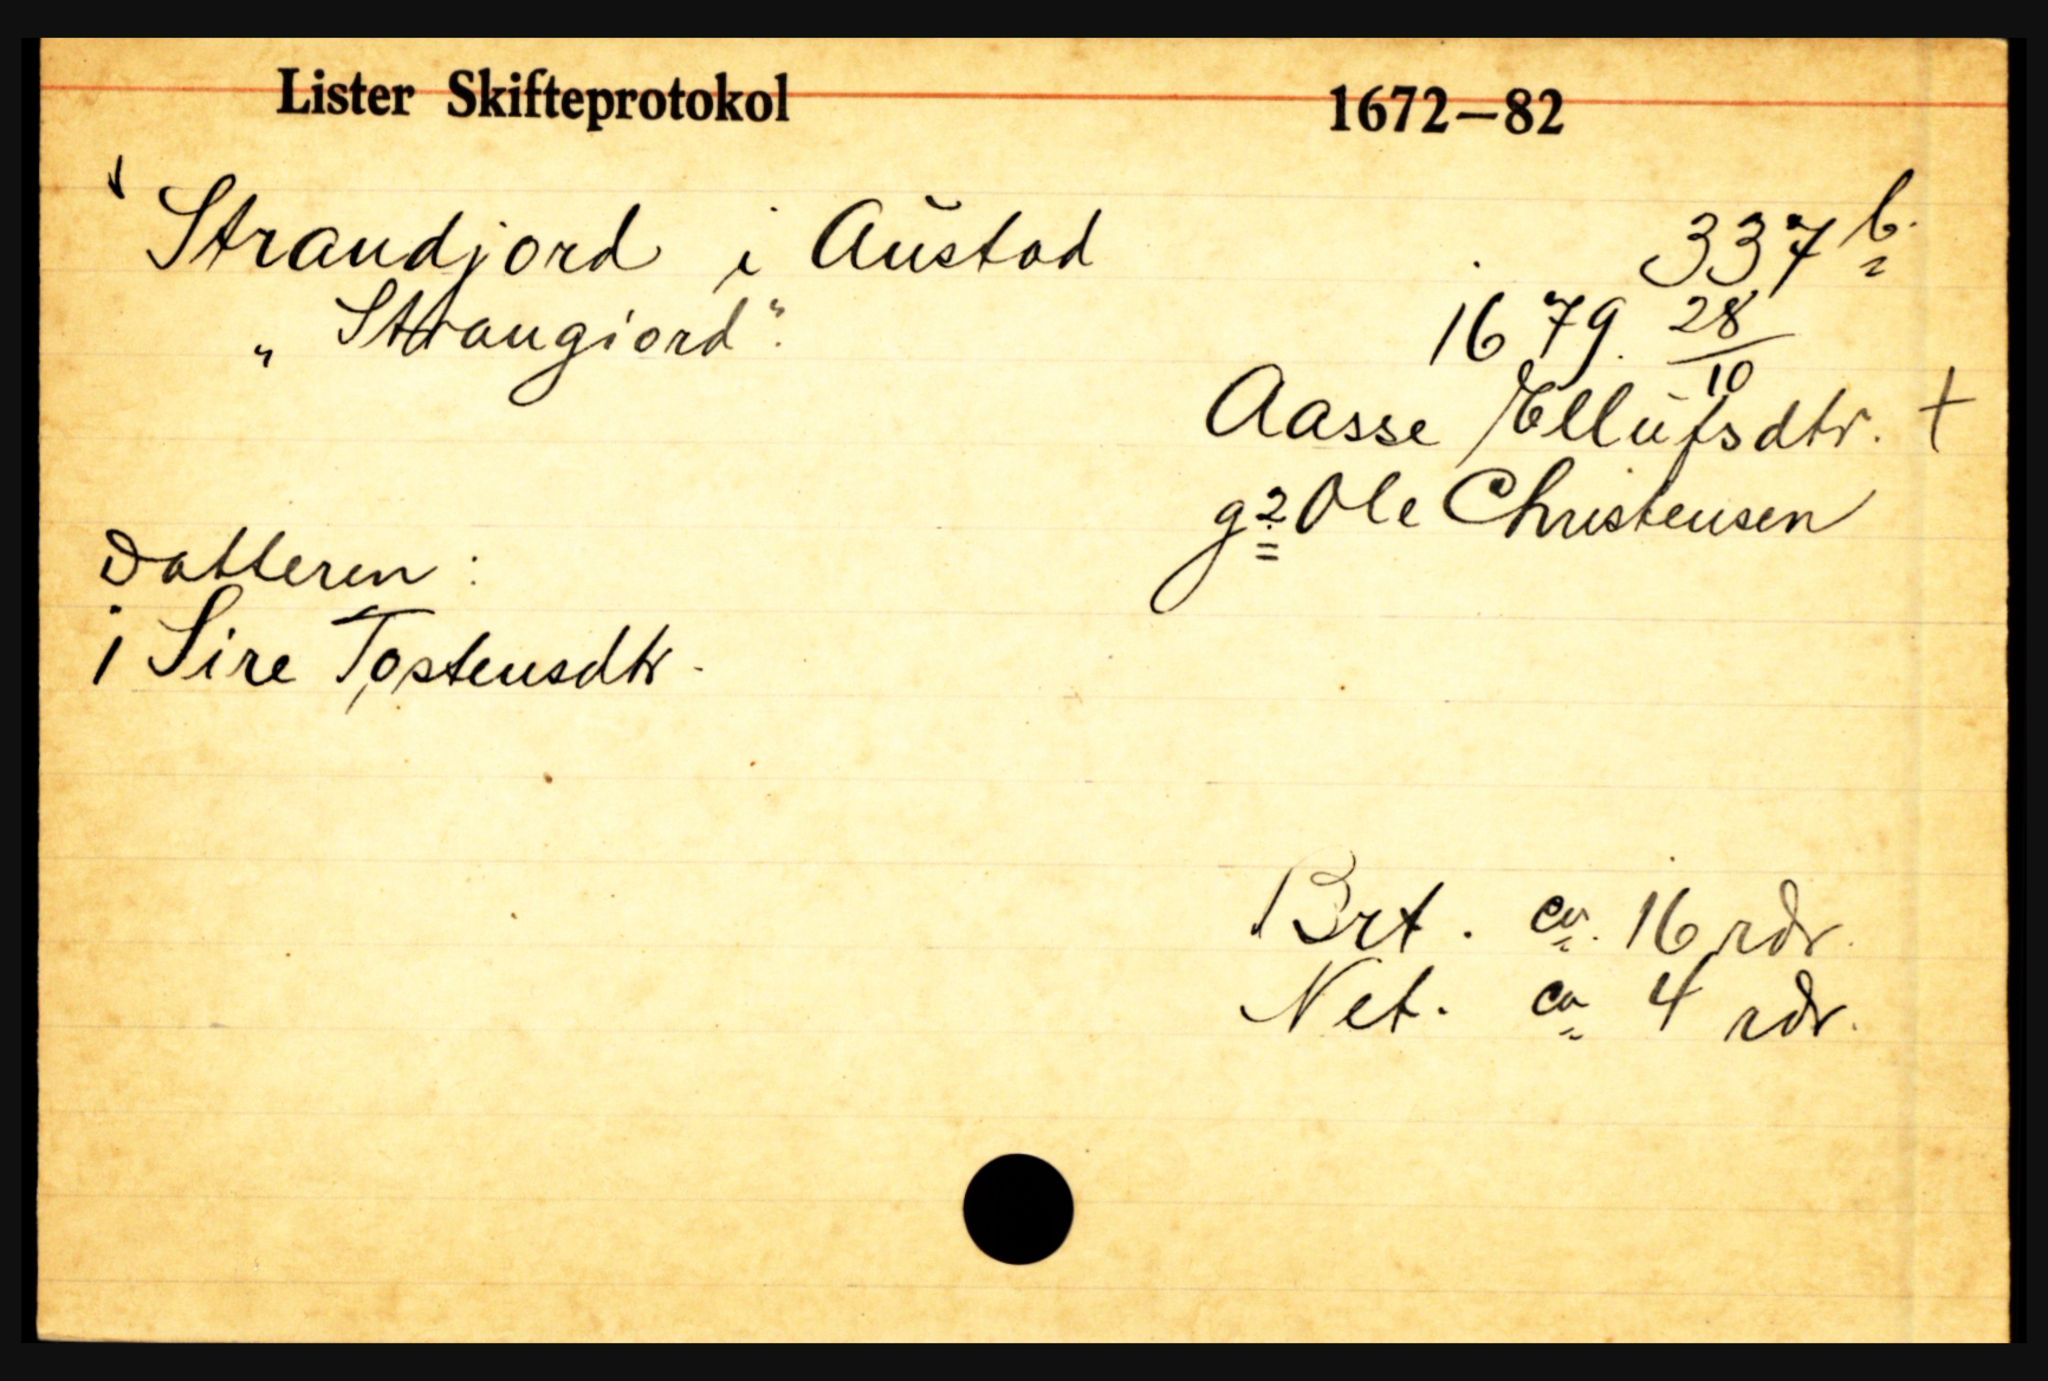 Lister Skifteprotokol 1672—82
Strandjord i Austad 337 b.
„Strangiord". 1679. 28/10
Aasse Ellufsdtr. +
g. 2 Ole Christensen
Datteren:
1 Sire Tostensdtr.
Brt. ca. 16 rdr.
Net. ca 4 rdr.